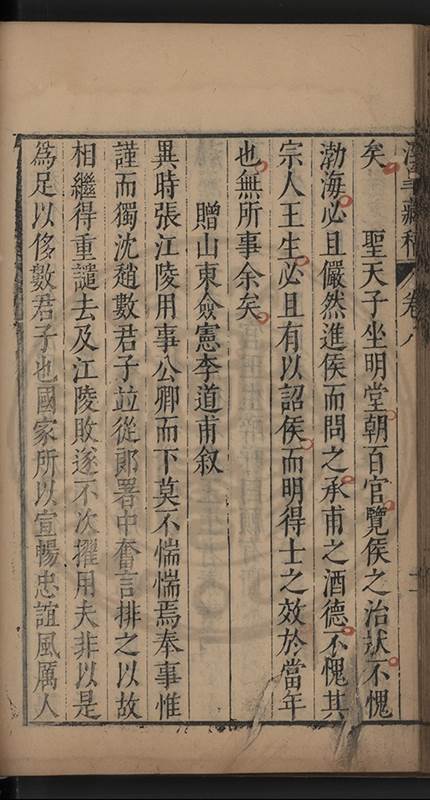 藏稿 卷八
矣 聖天子坐明堂朝百官覽侯之治狀不愧
渤海必且儼然進侯而問之承甫之酒德不愧其
宗人王生必且有以詔侯而明得士之效於當年
也無所事余矣
贈山東僉憲李道甫叙
異時張江陵用事公卿而下莫不惴惴焉奉事惟
謹而獨沈趙數君子竝從郎署中奮言排之以故
相繼得重譴去及江陵敗遂不次擢用夫非以是
為足以侈數君子也國家所以宣暢忠誼風厲人